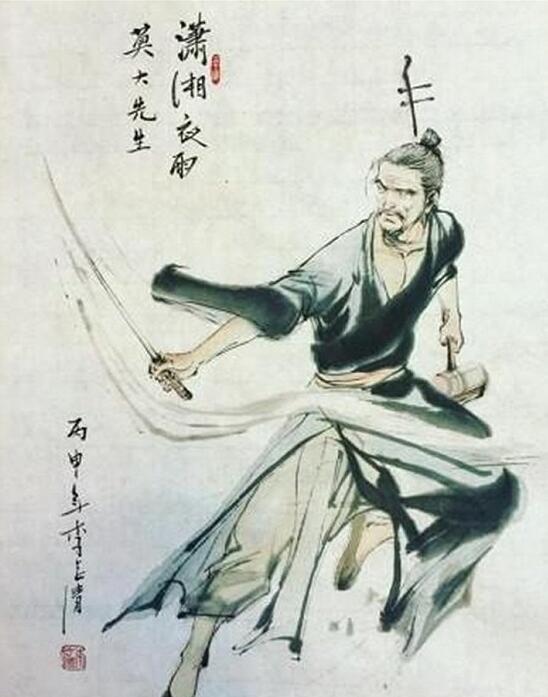 瀟湘夜雨
莫大先生
丙申年李志清